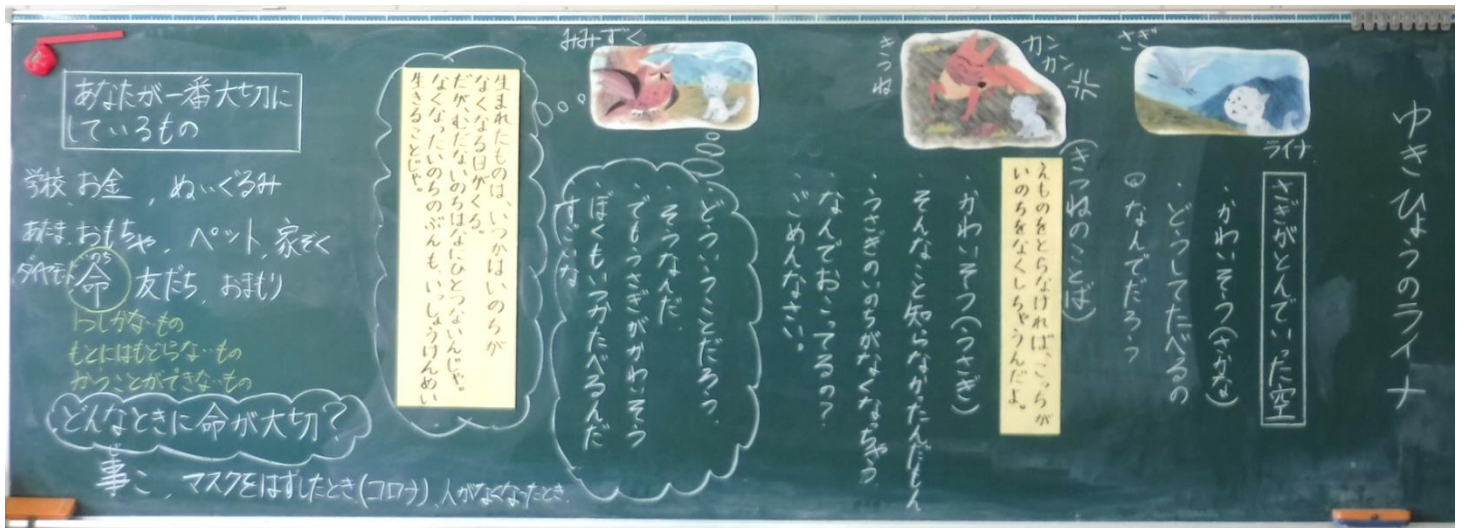 ゆきひょうのライナ
さぎ
ライナ
さぎがとんでいった空
・かわいそう(さかな)
・どうしてたべるの
・なんでだろう
カンカン
きつね
(きつねのことば)
えものをとらなければ、こっちが
いのちをなくしちゃうんだよ。
・かわいそう(うさぎ)
・そんなこと知らなかったんだもん
・うさぎのいのちがなくなっちゃう
・なんでおこってるの?
・ごめんなさい。
みみずく
・どういうことだろう。
・そうなんだ。
・でもうさぎがかわいそう
・ぼくもいつかたべるんだ
・すごいな
生まれたものは、いつかはいのちが
なくなる日がくる。
だが、むだないのちはなにひとつないんじゃ。
なくなったいのちのぶんも、いっしょうけんめい
生きることじゃ。
あなたが一番大切に
しているもの
学校、お金、ぬいぐるみ
あたま、おもちゃ、ペット、家ぞく
ダイヤモンド
いのち
命 友だち、おまもり
1つしかないもの
もとにはもどらないもの
かうことができないもの
どんなときに命が大切?
じ
事こ、マスクをはずしたとき(コロナ)、人がなくなったとき。